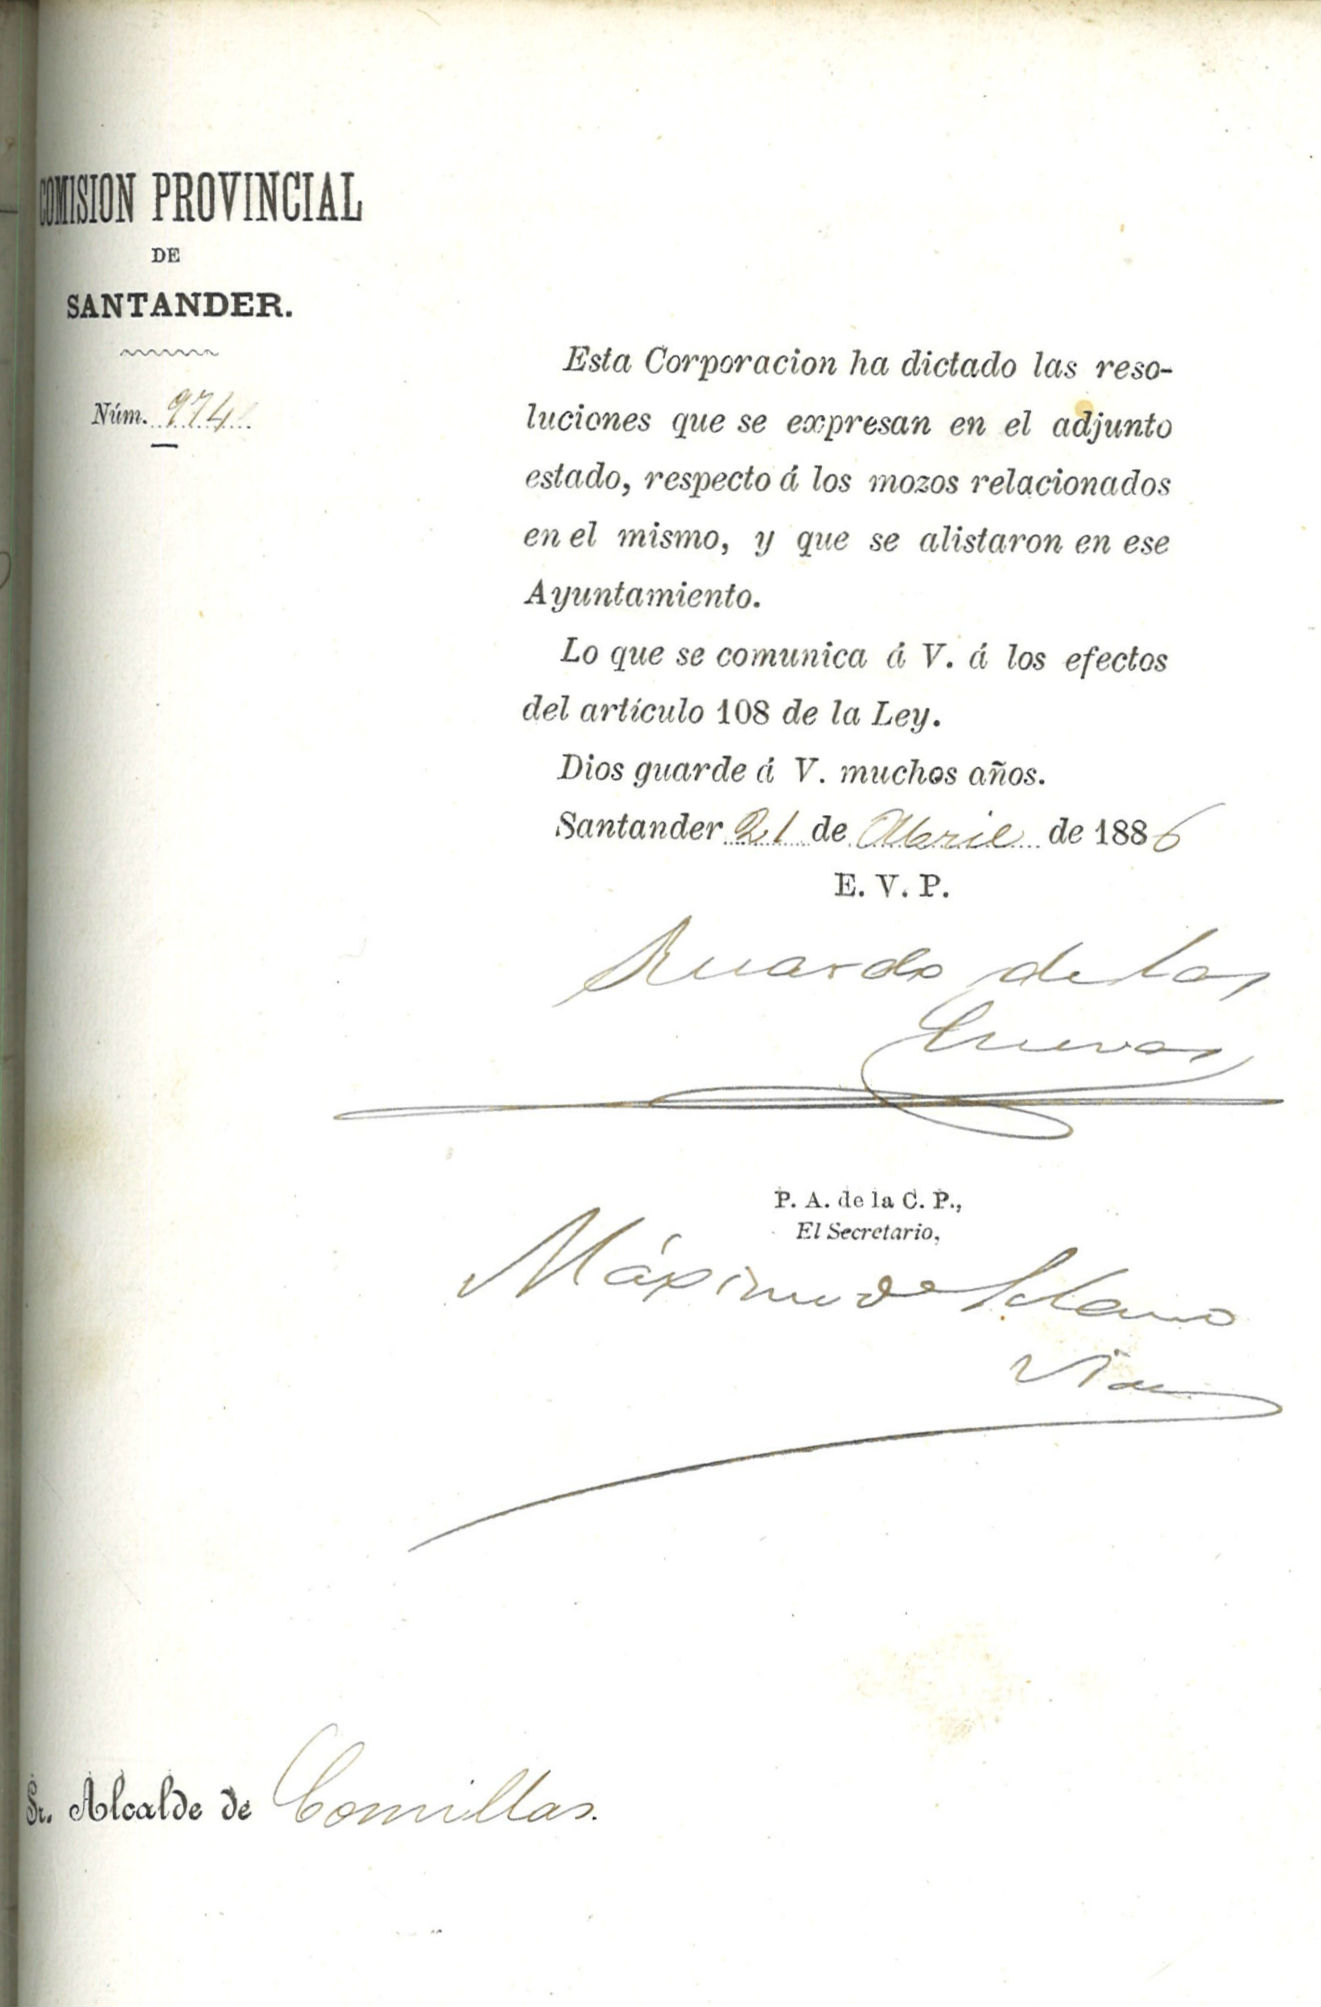 COMISION PROVINCIAL
DE
SANTANDER.
Núm. 974
Esta Corporacion ha dictado las reso-
luciones que se expresan en el adjunto
estado, respecto á los mozos relacionados
en el mismo, y que se alistaron en ese
Ayuntamiento.
Lo que se comunica á V. á los efectos
del artículo 108 de la Ley.
Dios guarde á V. muchos años.
Santander 21 de Abril de 1886
E. V. P.
de las
Cuevas
P. A. de la C. P.,
El Secretario,
Máximo de Solano
Vial
Sr. Alcalde de Comillas.